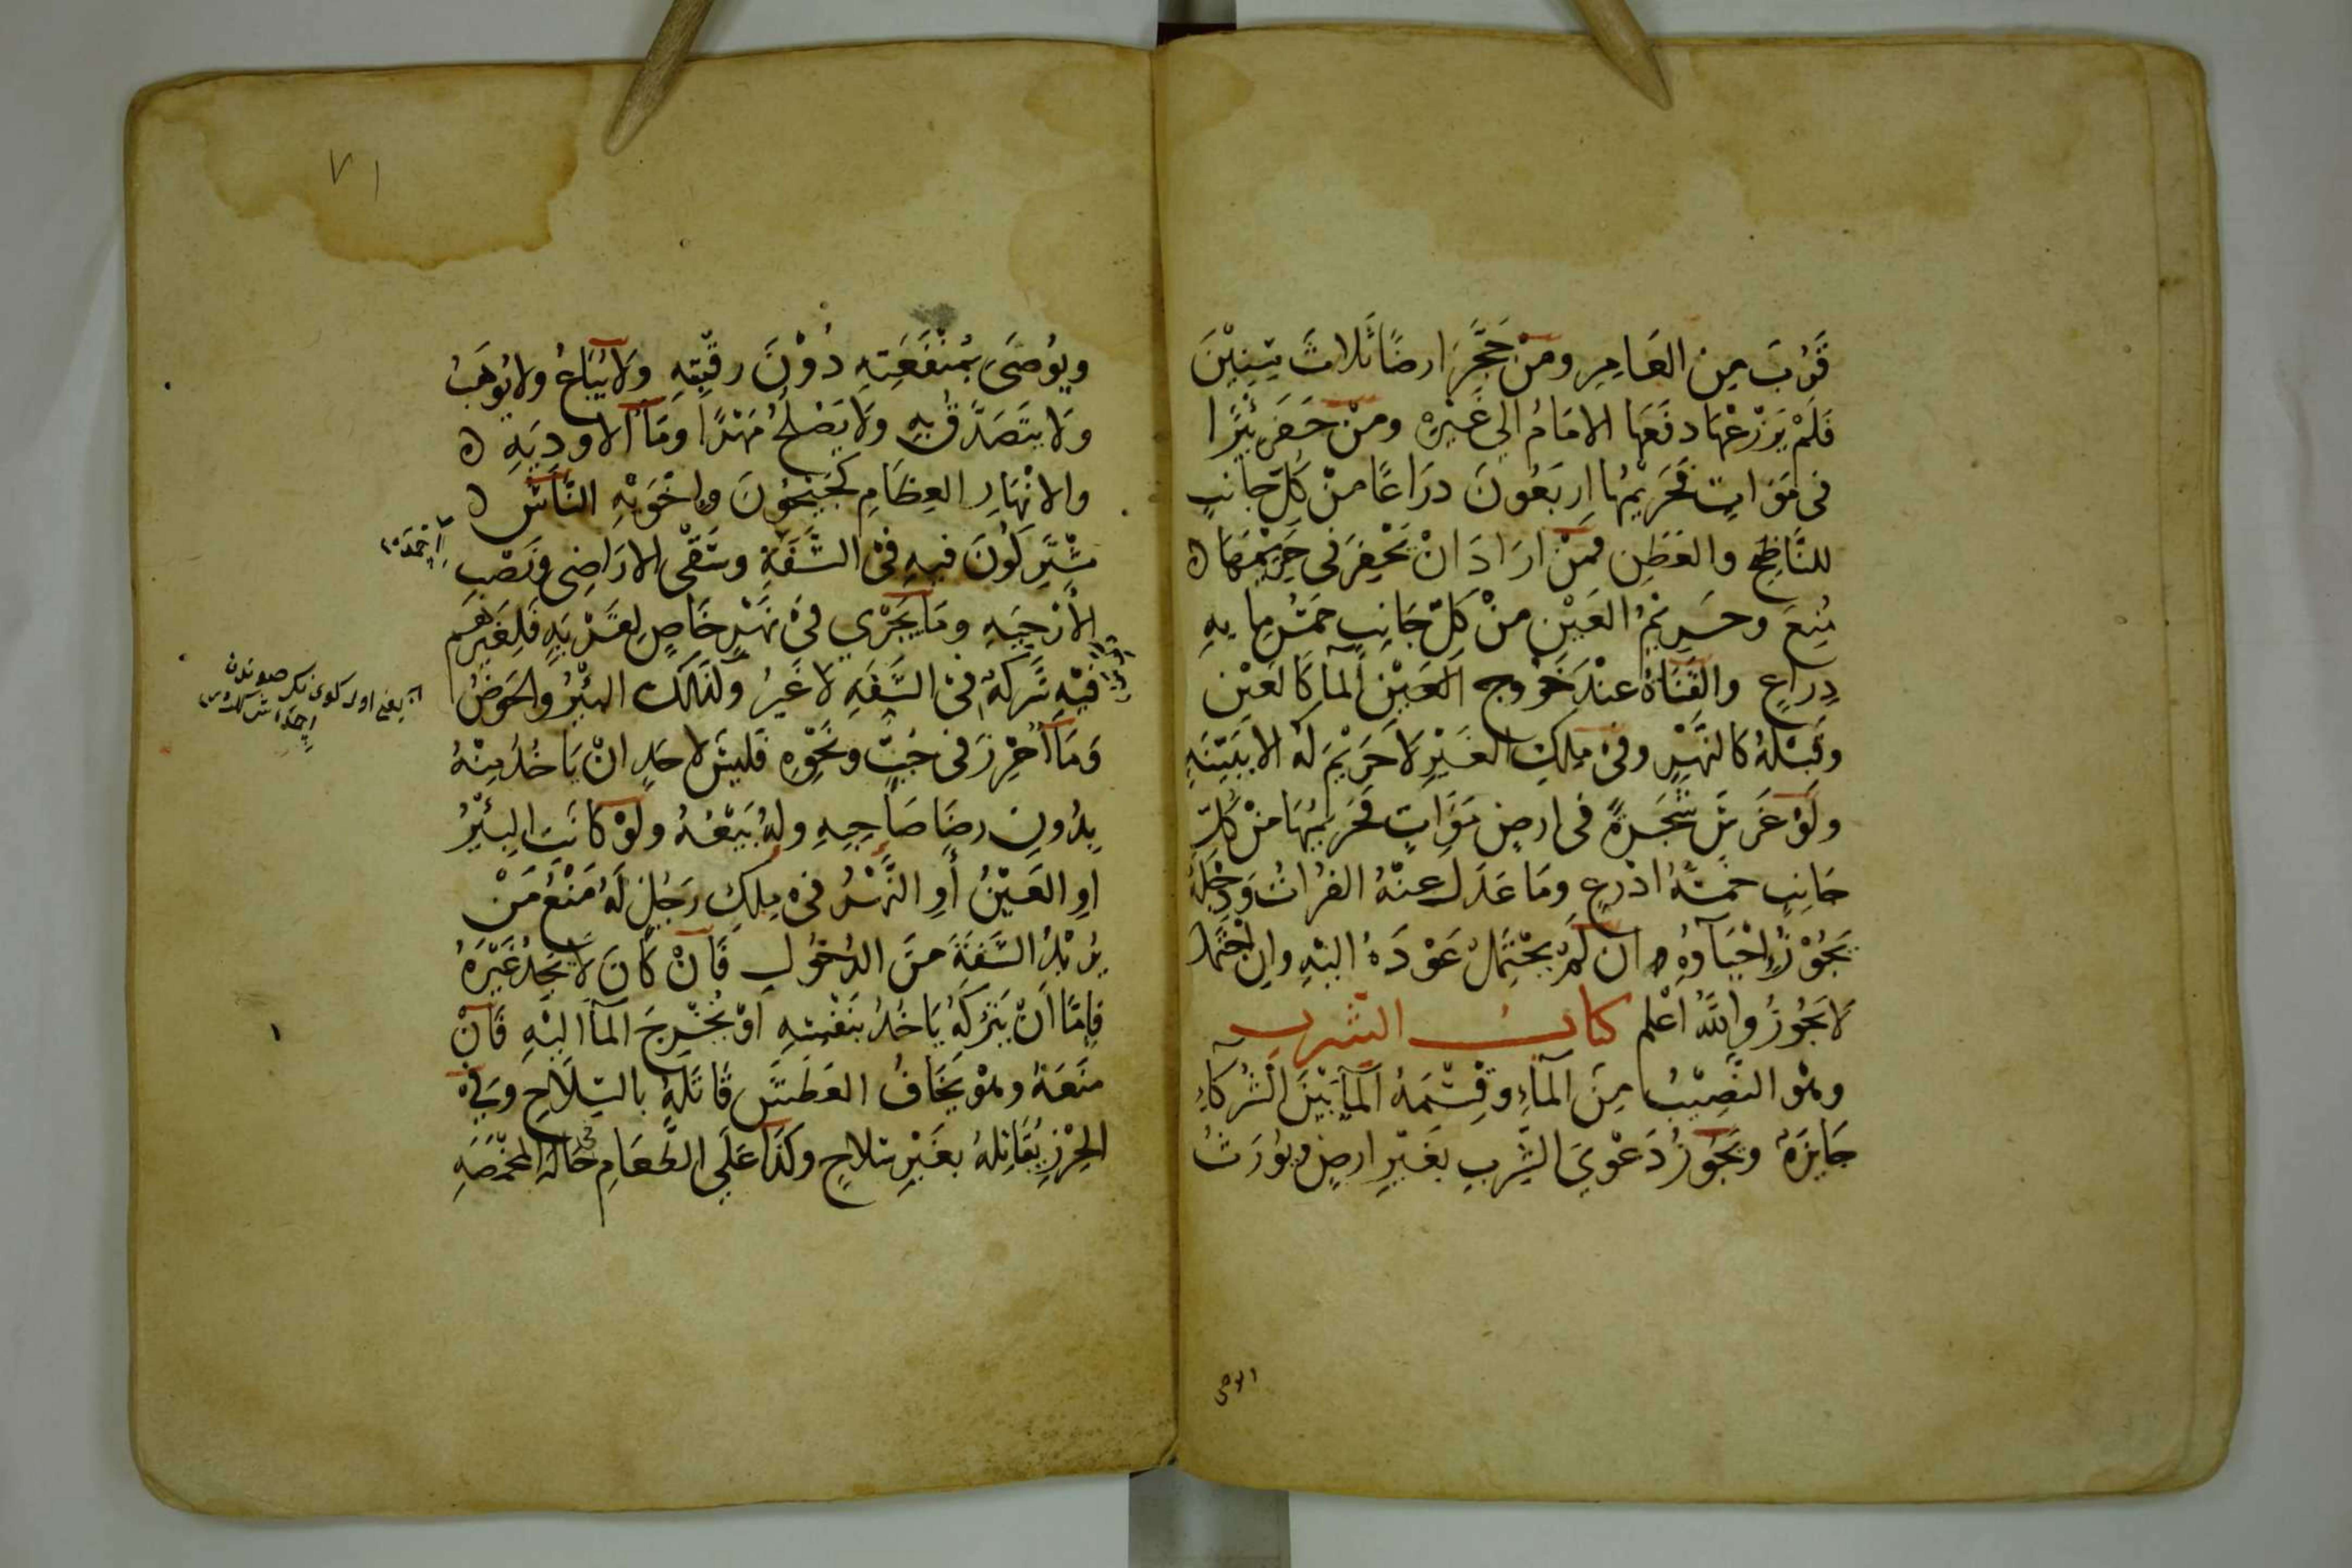 قَرُبَ مِنَ العَامِرِ ومَنْ حَجَّرَ ارضًا ثَلاثَ سِنِيْنَ
فَلَمْ يَزْرَعْهَا دفَعَهَا الامَامُ الي غَيْرِهِ ومَنْ حَفَرَ بِئْرًا
فى مَوَاتٍ فَحَرِيْمُهَا اربَعُونَ ذرَاعًا منْ كُلِّ جَانبٍ
للنَّاضِحِ والعَطَنِ فمَنْ ارَادَ انْ يَحْفِرَ فى حَرِيْمِهَا
مُنِعَ وحَرِيْمُ العَيْنِ منْ كلِّ جَانِبٍ خمَسُ مِايةِ
ذِراعٍ والقَنَاةُ عنْدَ خُرُوجِ المآ كَالعَيْنِ
وقَبْلَهُ كالنَّهْرِ وفى مِلكِ الغَيْرِ لَا حَرِيْمَ لَهُ الا ببَيِّنَةٍ
ولَوْ غَرَسَ شَجَرةً فى ارضٍ مَوَاتٍ فَحَرِيْمُهَا منْ كُلِّ
جَانِبٍ خمَسَةُ اذْرعٍ ومَا عَدَلَ عنْهُ الفُرَاتُ ودِجْلَةُ
يَجُوْزُ اِحْيَآوُهُ ان لَمْ يحْتَمِلْ عَوْدَهُ اليْهِ واِن احْتَمَلَ
لَا يَجُوزُ واللهُ اَعْلم كتابُ الشرب
وهُو النَّصِيْبُ مِنَ المآءِ وقِسْمَةُ المآ بَيْنَ الشُّركَآءِ
جَايزَةٌ ويَجُوزُ دَعْوَي الشِّربِ بغَيْرِ ارضٍ ويُورَثُ
ويُوصَى بمنْفَعَتِهِ دُوْنَ رقَبَتِهِ ولَا يُبَاعُ ولا يُوهَبُ
ولَا يتَصَدَّقُ بِهِ ولَا يَصْلُحُ مَهْرًا ومَآ الاودِيَةِ
والانْهَارِ العِظَامِ كَجَيْحُونَ واخْوَتِهِ النَّاسُ
مشْتَرِكُونَ فيهِ فى الشَّفَةِ وسَقْي الارَاضِى ونَصْبِ
الأَرْحِيَةِ ومَا يَجْرِي فى نَهْرٍ خَاصٍ لِقَرْيَةٍ فَلِغَيْرِهِم
فيْهِ شَركَةٌ فى الشَّفَةِ لا غَيْرُ وكذَلكَ البئْرُ والحَوضُ
وَمَا اُحْرِزَ فى جُبٍّ ونَحْوِهِ فَلَيسَ لاحَدٍ انْ يَاخُذَ منْهُ
بِدُونِ رضَا صَاحِبِهِ ولهُ بَيْعُهُ ولَوْ كَانَتِ البِئْرُ
اوِ العَيْنُ أوِ النَّهْرُ فى مِلكِ رَجُلٍ لَهُ مَنْعُ مَنْ
يُرِيْدُ الشَّفَةَ منَ الدُخُولِ فَاِنْ كَانَ لَا يَجِدُ غَيْرَهُ
فَاِمَّا انْ يَتْركَهُ يَاخُذُ بنَفْسِهِ اوْ يُخْرِجَ المآَ اليْهِ فَاِنْ
منَعَهُ وهُوْ يَخَافُ العَطَشَ قَاتَلَهُ بالسِّلَاحِ وفى
الحِرْزِ يُقَاتِلهُ بغَيْرِ سلاحٍ وكَذَا عَلَي الطَّعَامِ حَالَةَ المخْمَصَةِ
٧١